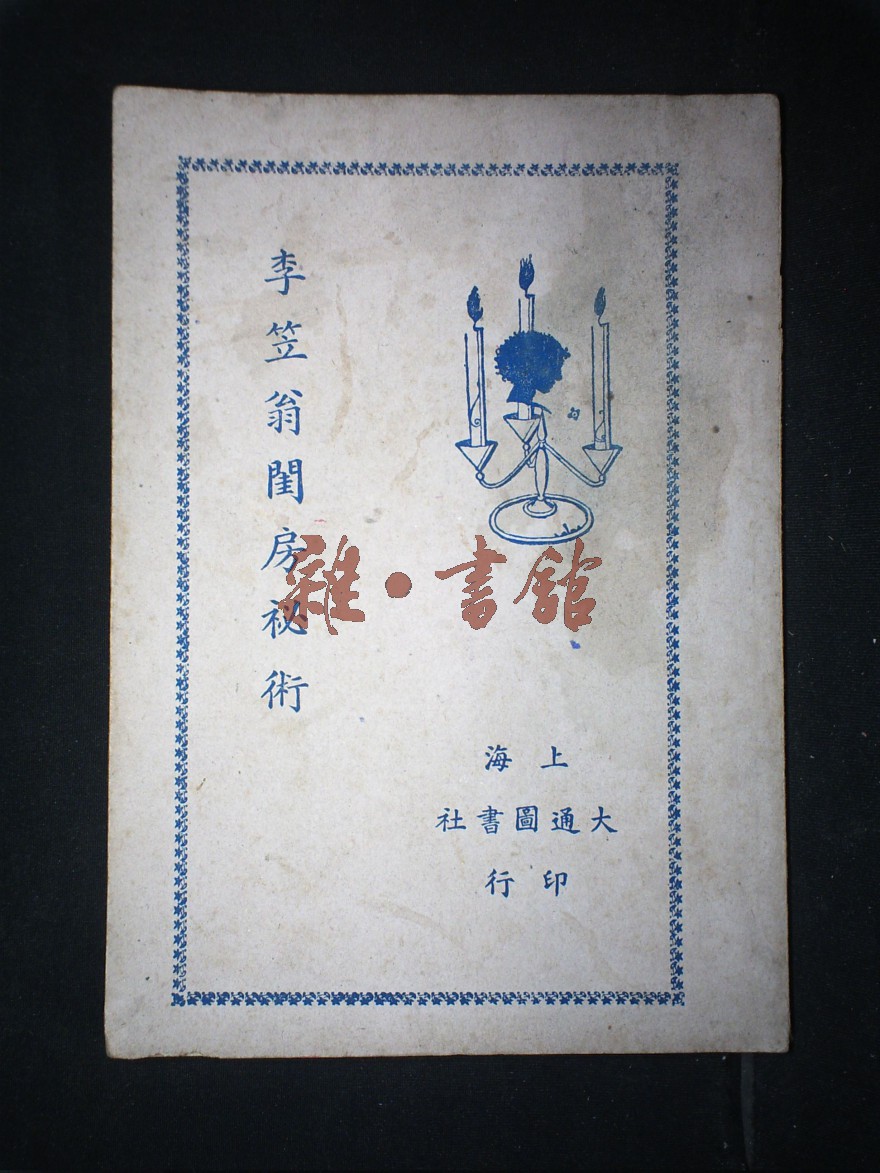 李笠翁閨房祕術
雜·書館
上海
大通圖書社
印行